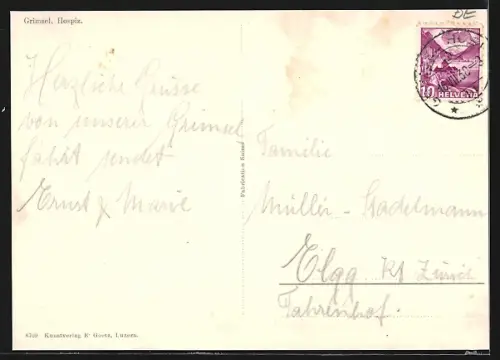 Grimsel, Hospiz.
Herzliche Grüsse
von unserer Grimsel
fahrt sendet
Ernst &
Familie
Müller-Stadelmann
Elgg Kt Zürich
Fahrenhof.
10 HELVETIA
Kunstverlag E. Goetz, Luzern.